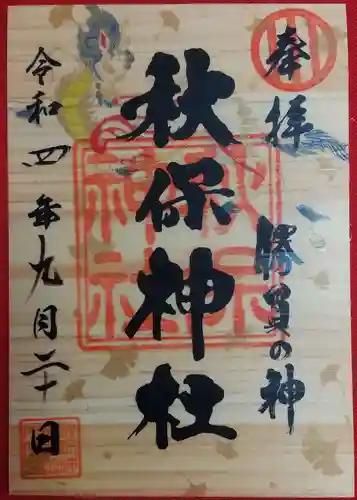 奉拝
勝負の神
秋保神社
令和四年九月二十日
秋保神社